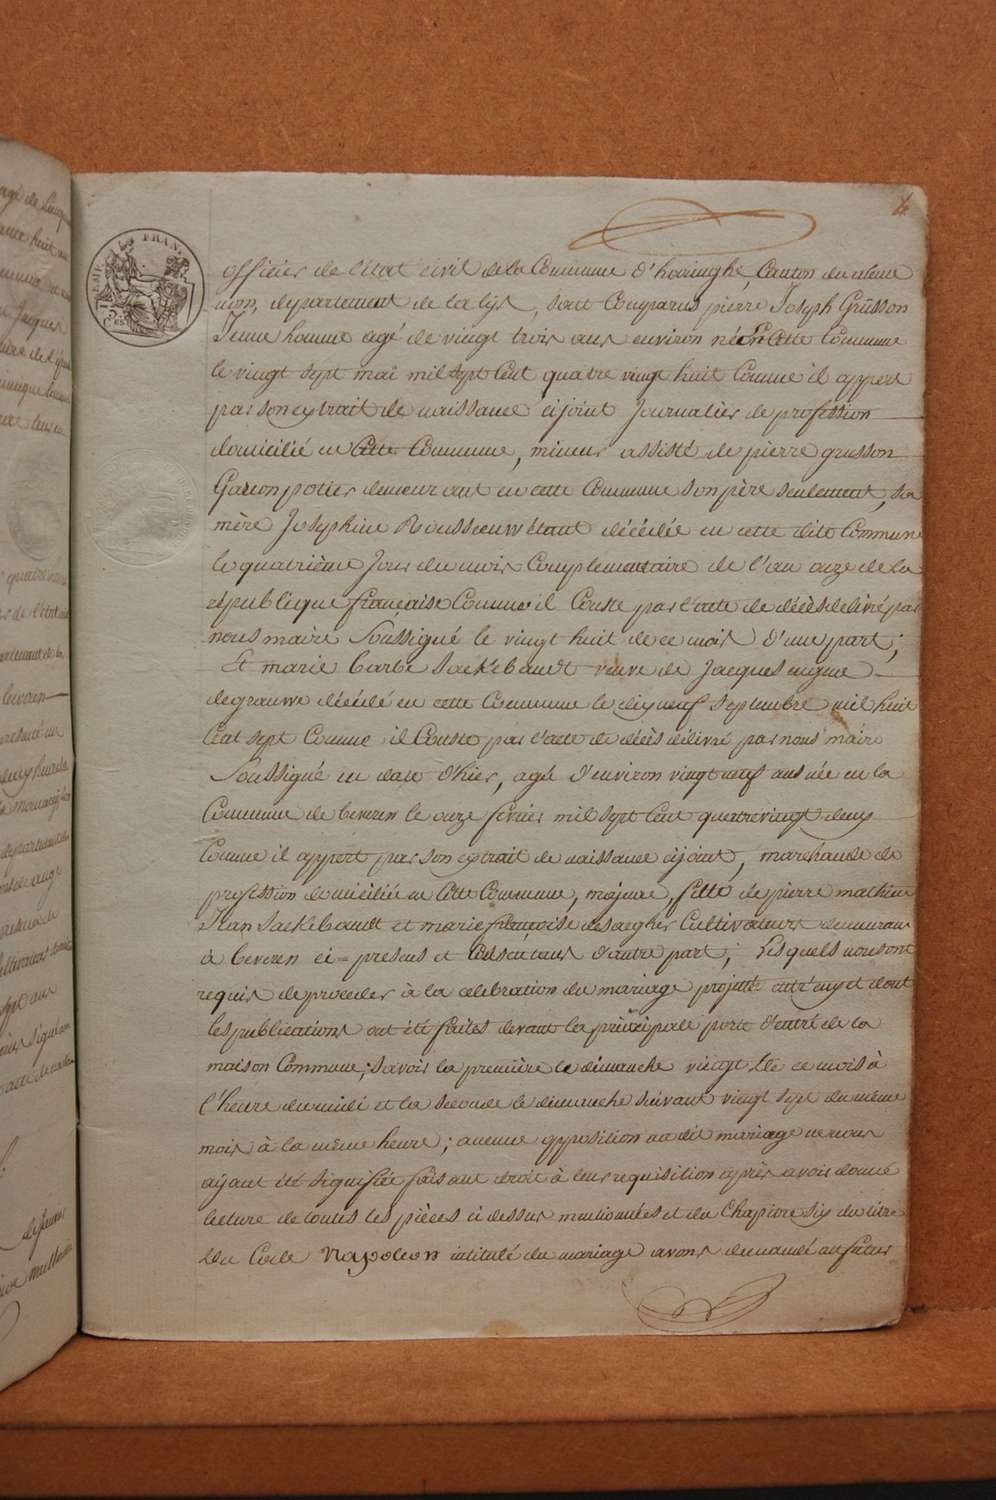 4
officier de l'état civil de la Commune d'haringhe, Canton du même
nom, departement de la lijs, sont Comparus pierre Joseph Grüsson
Jeune homme agé de vingt trois ans environ né en Cette Commune
le vingt sept mai mil sept Cent quatre vingt huit Comme il appert
par son extrait de naissance cijoint Journalier de profession
domicilié en Cette Commune, mineur assisté de pierre grusson
Garçon potier demeurant en cette Commune son père seulement, sa
mère Josephine Rousseeuw étant décédée en cette dite Commune
le quatrième Jour du mois Complementaire de l'an onze de la
republique française Comme il Conste par l'acte de décès délivré par
nous maire Soussigné le vingt huit de ce mois d'une part ;
Et marie barbe Saekebaudt veuve de Jacques eugene
degrauwe décédé en cette Commune le dixneuf septembre mil huit
Cent sept Comme il Conste par l'acte de décès délivré par nous maire
Soussigné en date d'hier, agée d'environ vingt neuf ans née en la
Commune de beveren le onze fevrier mil sept Cent quatrevingt deux
Comme il appert par son extrait de naissance cijoint, marchande de
profession domiciliée en Cette Commune, majeure, fille de pierre mathieu
Jean Saekebaudt et marie françoise desaegher Cultivateurs demeurans
à beveren ci-presens et Consentans d'autre part ; Lesquels nous ont
requis de proceder à la célébration du mariage projetté entr'eux et dont
les publications ont été faites devant la principale porte d'entré de la
maison Commune ; savoir la première le dimanche vingt de ce mois à
l'heure de midi et la seconde le dimanche suivant vingt sept du même
mois à la même heure ; aucune opposition au dit mariage ne nous
aÿant été signifiée faisant droit à leur requisition après avoir donné
lecture de toutes les pièces ci dessus mentionnées et du Chapitre six du titre
du Code Napoleon intitulé du mariage avons demandé au futur